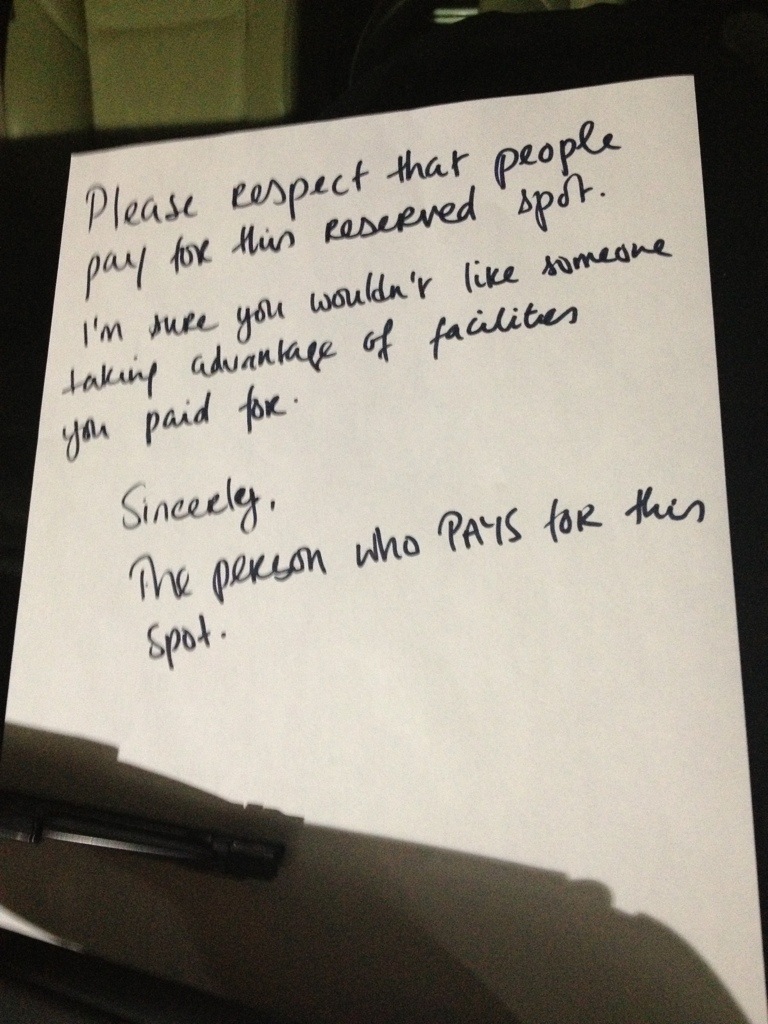 Please respect that people
pay for this reserved spot.
I'm sure you wouldn't like someone
taking advantage of facilities
you paid for.
Sincerely,
The person who PAYS for this
spot.